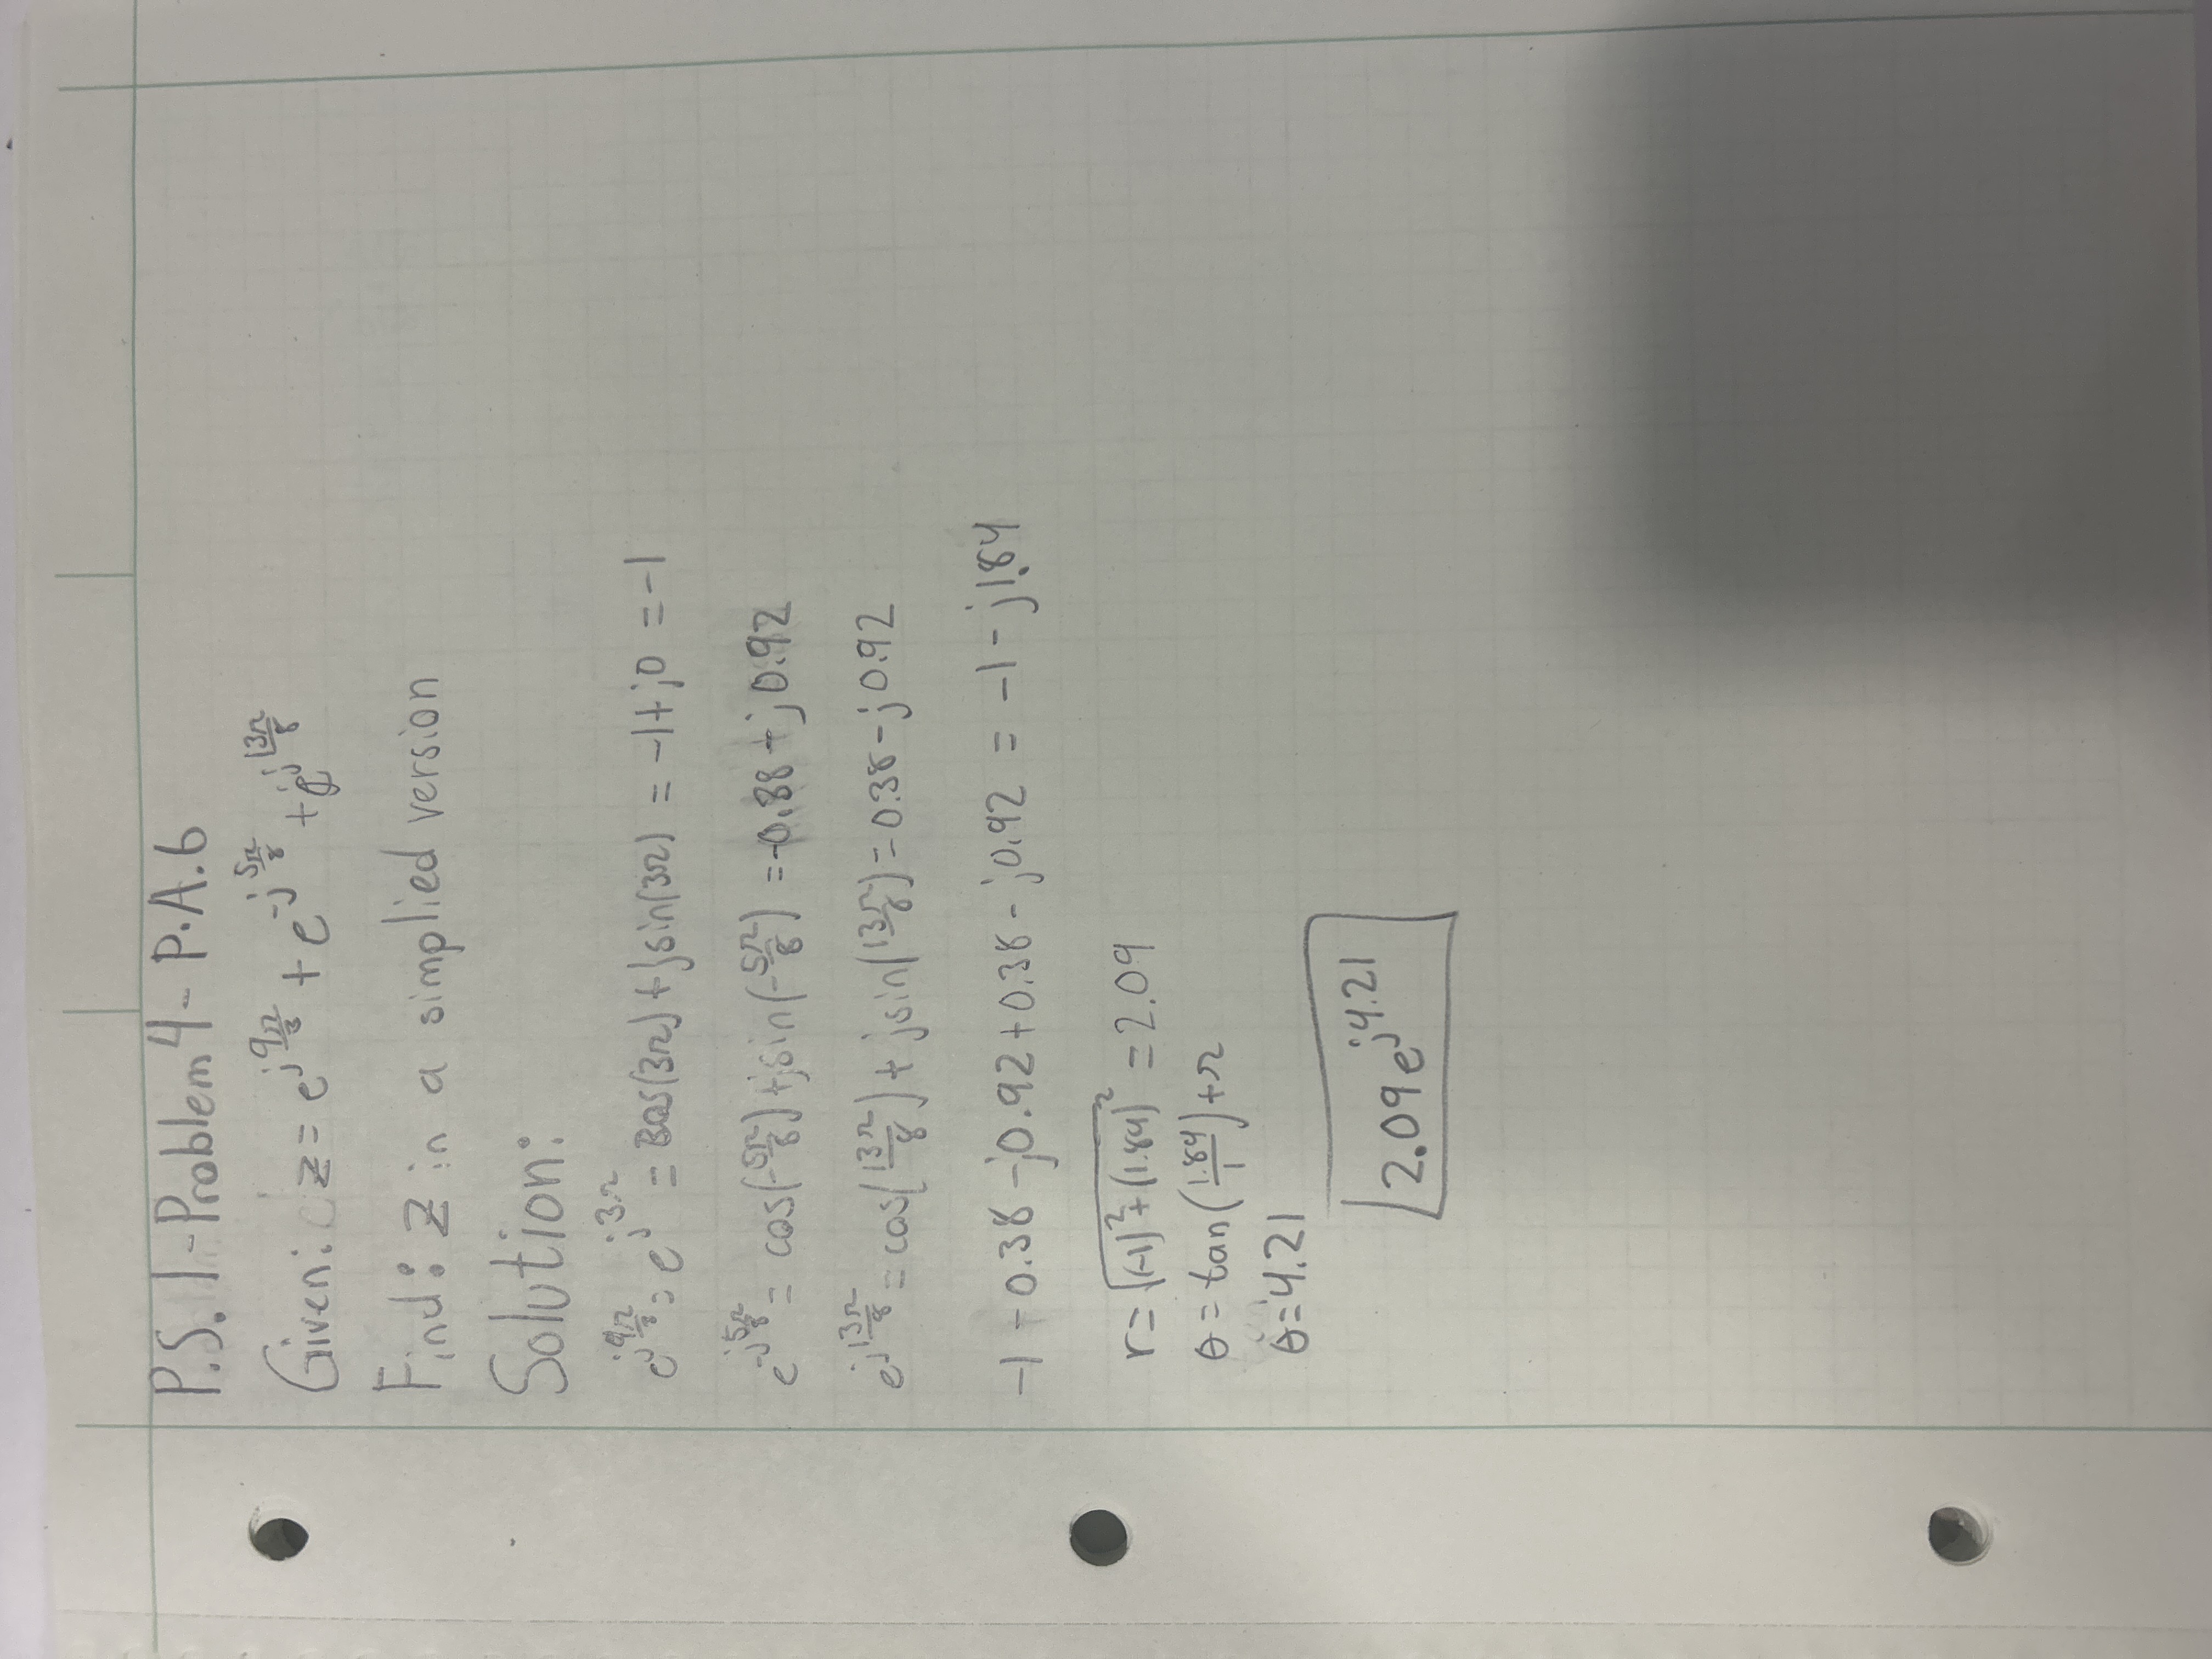 P.S. 1-Problem 4- P.A.6
Given: z = e^{j\frac{9π}{3}} + e^{-j\frac{5π}{8}} + e^{j\frac{13π}{8}}
Find: z in a simplied version
Solution:
e^{j\frac{9π}{3}} = e^{j3π} = cos(3π) + jsin(3π) = -1+j0 = -1
e^{-j\frac{5π}{8}} = cos(-\frac{5π}{8}) + jsin(-\frac{5π}{8}) = -0.38 - j0.92
e^{j\frac{13π}{8}} = cos(\frac{13π}{8}) + jsin(\frac{13π}{8}) = 0.38 - j0.92
-1 - 0.38 - j0.92 + 0.38 - j0.92 = -1 - j1.84
r = \sqrt{(-1)^2 + (1.84)^2} = 2.09
θ = tan(\frac{1.84}{1}) + π
θ = 4.21
2.09 e^{j4.21}